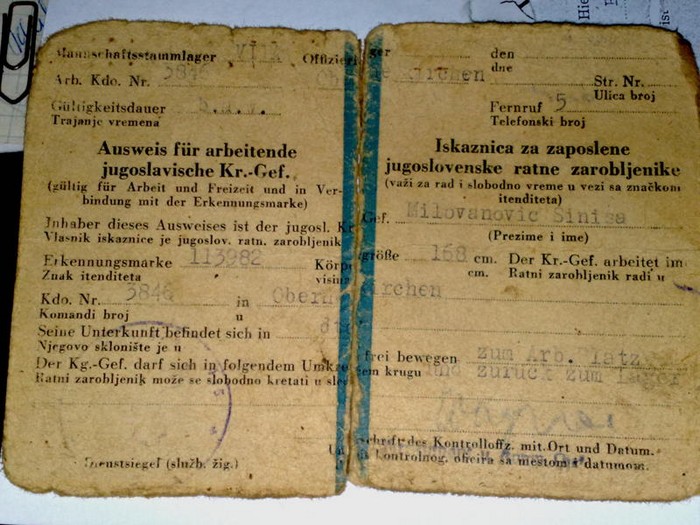 Mannschaftsstammlager VI/A Offizierlager den
dne
Arb. Kdo. Nr. 3846 Obernkirchen Str. Nr.
Ulica broj
Gültigkeitsdauer Fernruf 5
Trajanje vremena Telefonski broj
Ausweis für arbeitende
jugoslavische Kr.-Gef.
(gültig für Arbeit und Freizeit und in Ver-
bindung mit der Erkennungsmarke)
Iskaznica za zaposlene
jugoslovenske ratne zarobljenike
(važi za rad i slobodno vreme u vezi sa značkom
itenditeta)
Inhaber dieses Ausweises ist der jugosl. Kr. Gef. Milovanovic Sinisa
Vlasnik iskaznice je jugoslov. ratn. zarobljenik (Prezime i ime)
Erkennungsmarke 113982 Körpergröße 168 cm. Der Kr.-Gef. arbeitet im
Znak itenditeta visina cm. Ratni zarobljenik radi u
Kdo. Nr. 3846 in Obernkirchen
Komandi broj u
Seine Unterkunft befindet sich in
Njegovo sklonište je u
Der Kg.-Gef. darf sich in folgendem Umkreis frei bewegen zum Arb. Platz
Ratni zarobljenik može se slobodno kretati u sledećem krugu und zurück zum Lager
Dienstsiegel (služb. žig.)
Unterschrift des Kontrolloffz. mit. Ort und Datum.
kontrolnog. oficira sa mestom i datumom.